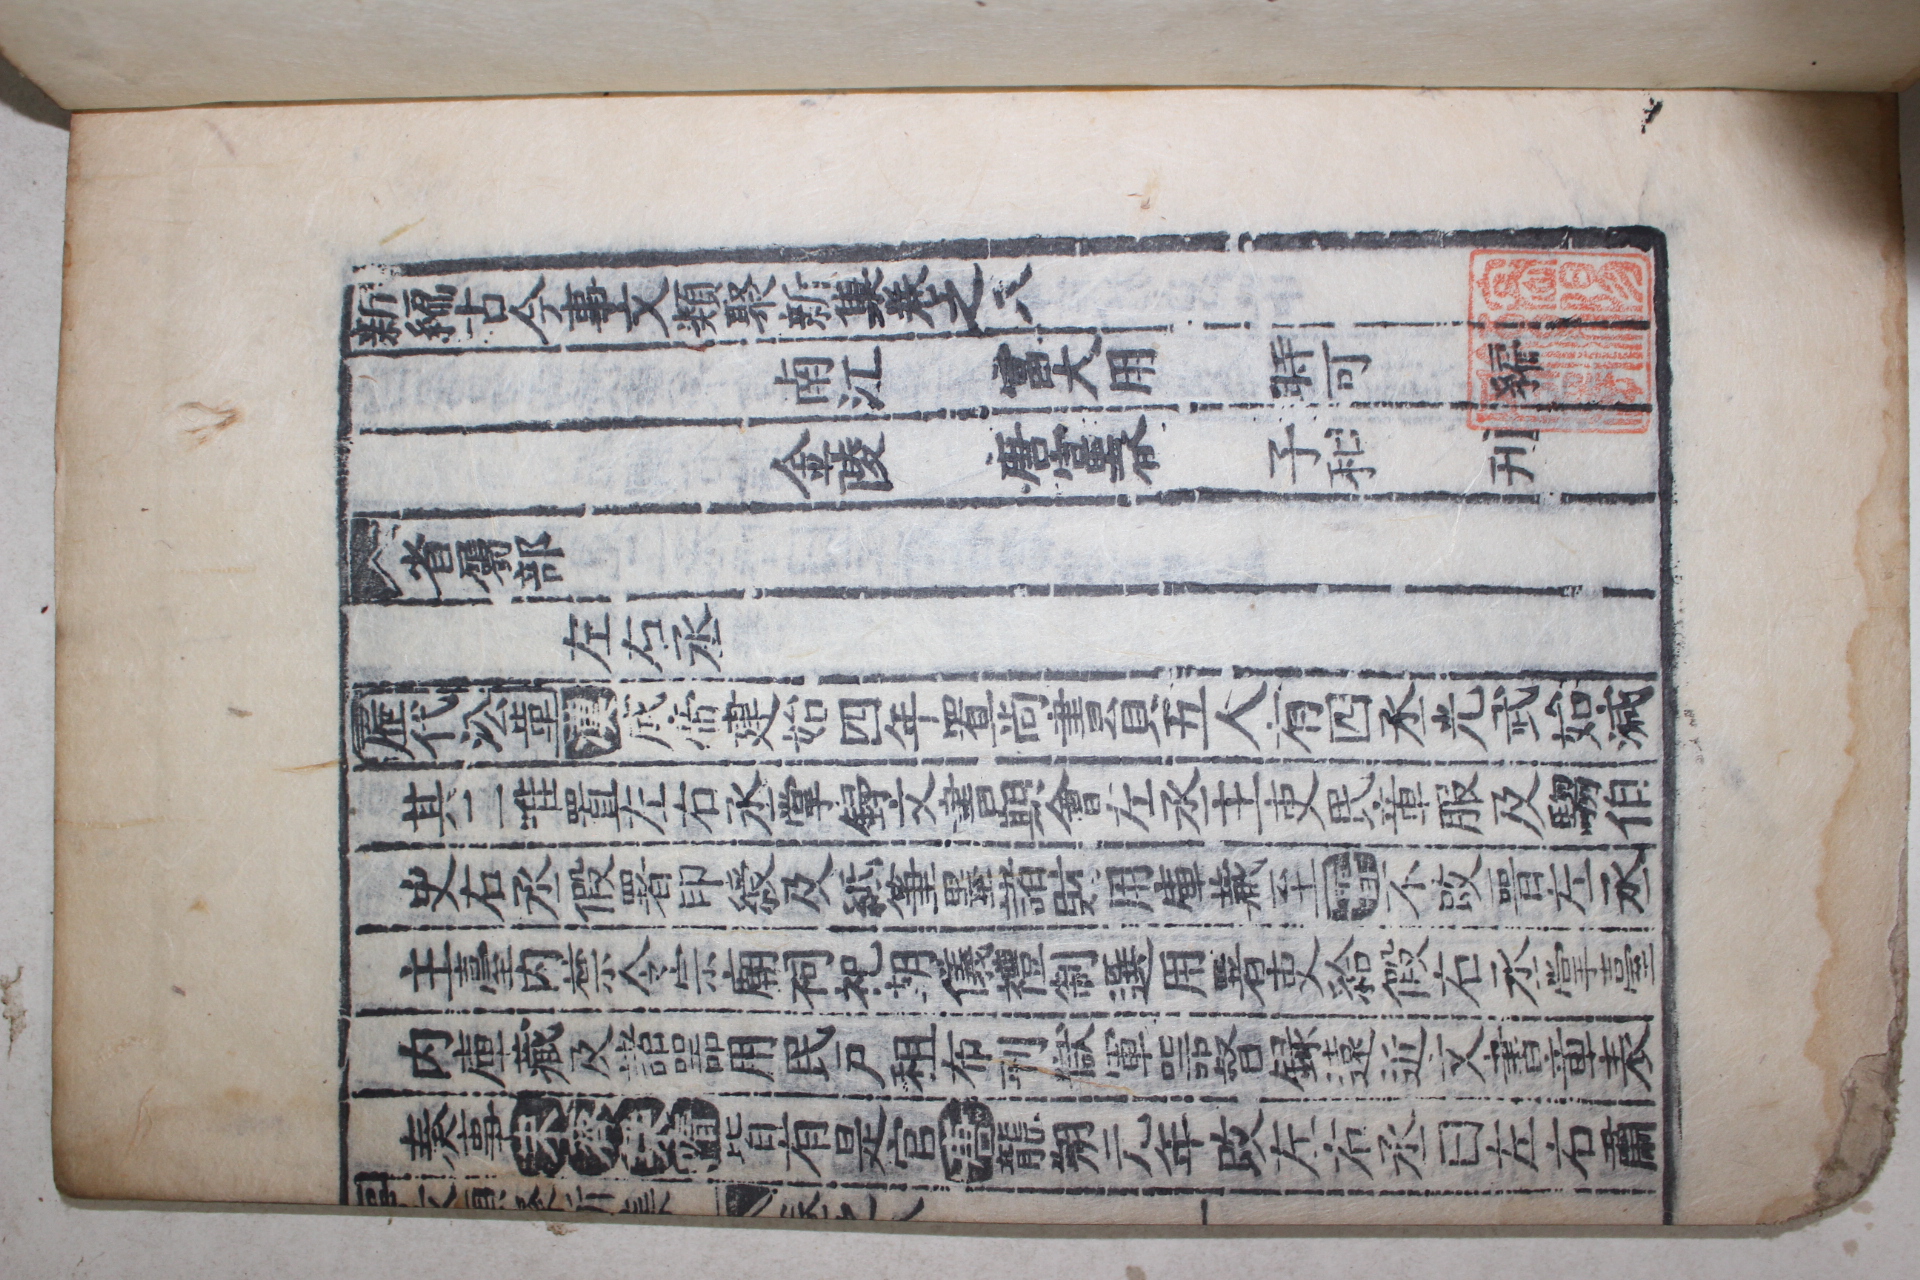 新編古今事文類聚新集卷之八
南江 富大用 時可 編
金陵 唐富春 子和 刊
省屬部
左右丞
歷代沿革漢成帝建始四年置尚書員五人有四丞光武始減
其二唯置左右丞掌録文書期會左丞主吏民章服及騶伯
史右丞假署印綬及紙筆墨諸財用庫藏至不改晉左丞
主臺内禁令宗廟祠祀朝儀禮制選用署吏給假右丞掌臺
内庫藏及諸噐用民戸租布刑獄軍噐督録遠近文書章表
奏事宋齊梁隋皆有是官唐龍朔元年改左右丞曰左右肅
事文類聚新集 卷之八 一